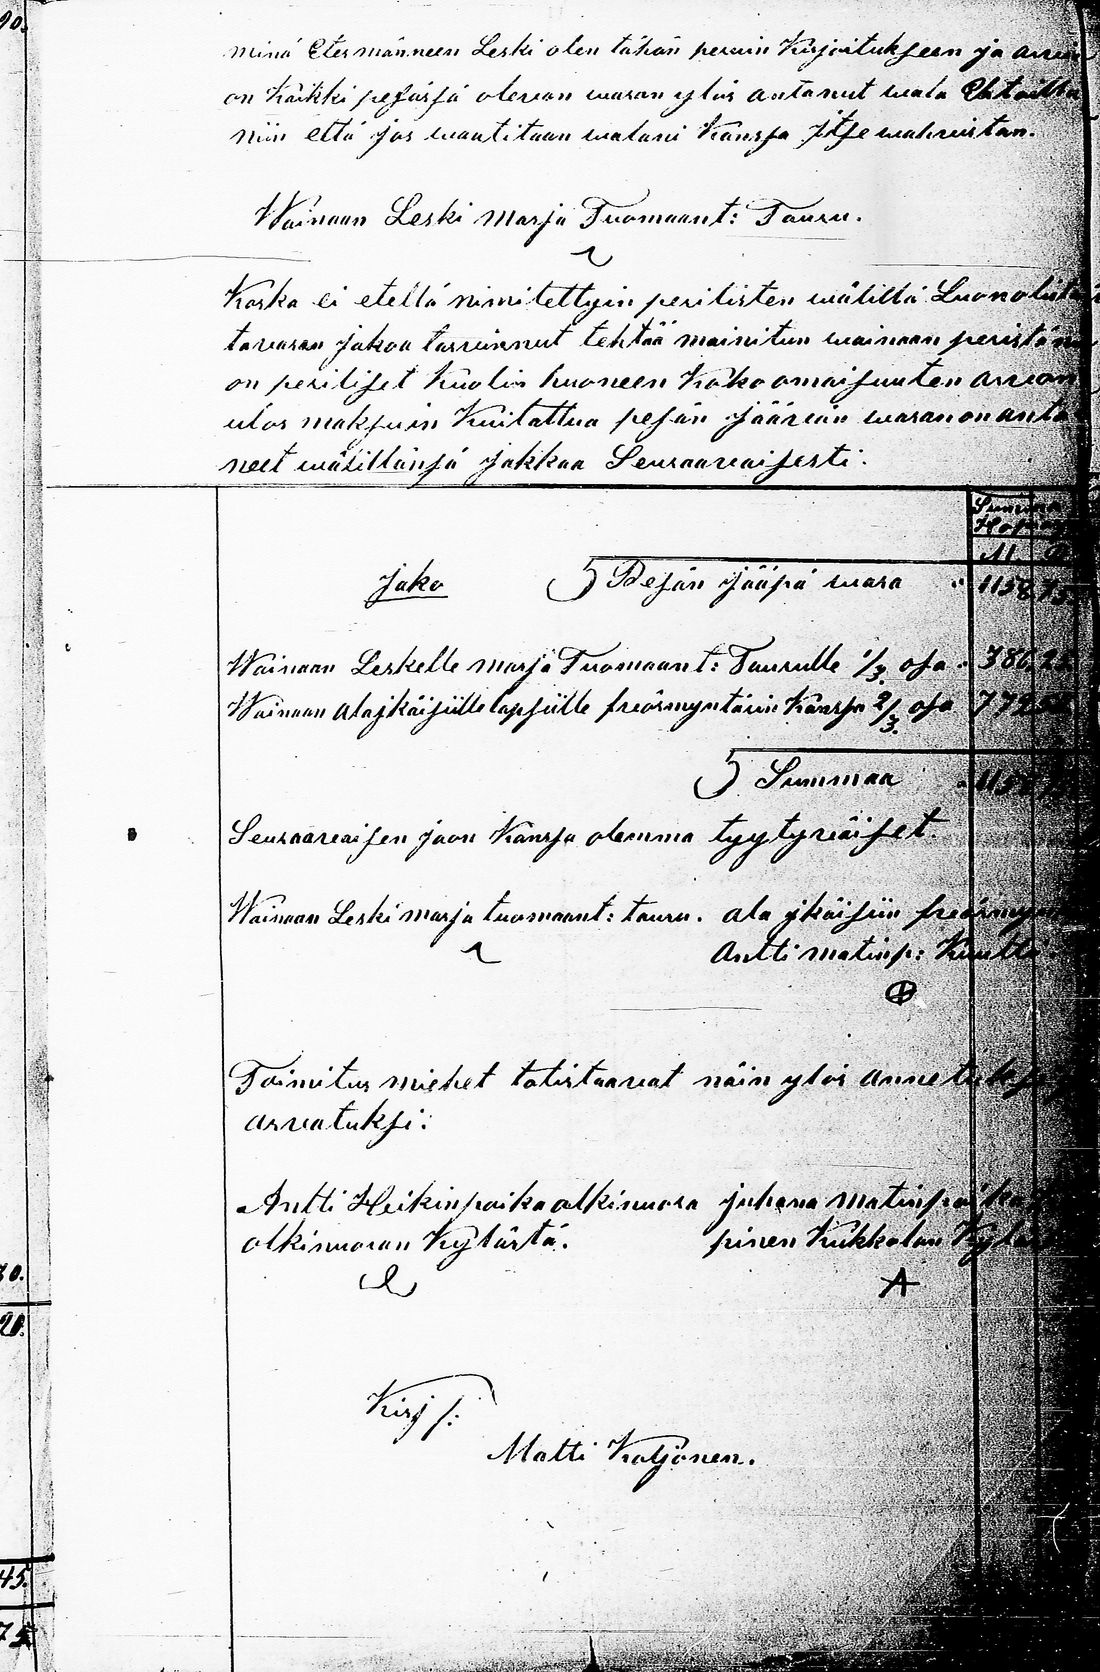 90.
minä Etesmänneen Leski olen tähän peruin Kirjoitukseen ja arwon
on Kaikki pesässä olewan waran ylös antanut wala Ehtoilla
niin että jos waatitaan walani Kanssa itse wahwistan.
Wainaan Leski marja Tuomaant: Tauru.
Koska ei etellä nimitettyin perilisten wälillä Luonolista
tawaran jakoa tarwinnut tehtää mainitun wainaan peristänä
on periliset Kuolin huoneen Koko omaisuuten arwon
ulos maksuin Kuitattua pesän jääwän waran on anta
neet wälillänsä jakkaa Seuraawaisesti:
Summa
M P
Jako Pesän jääpä wara 1158 75
Wainaan Leskelle marja Tuomaant: Taurulle 1/3 osa 386 25
Wainaan alaikäisille lapsille freörmyntärin Kanssa 2/3 osa 772 50
Summaa 1158 75
Seuraawaisen jaon Kanssa olemma tyytywäiset.
Wainaan Leski marja tuomaant: tauru. ala ikäisiin
Antti matinp: Kuutti
Toimitus miehet totistaawat näin ylös annetuksi
arwatuksi:
Antti Heikinpoika alkinuora juhana matinpoika
olkinuoran Kylästä. pinen Kukkolan Kylästä
Kirj s:
Matti Koljonen.
30.
20.
45.
75